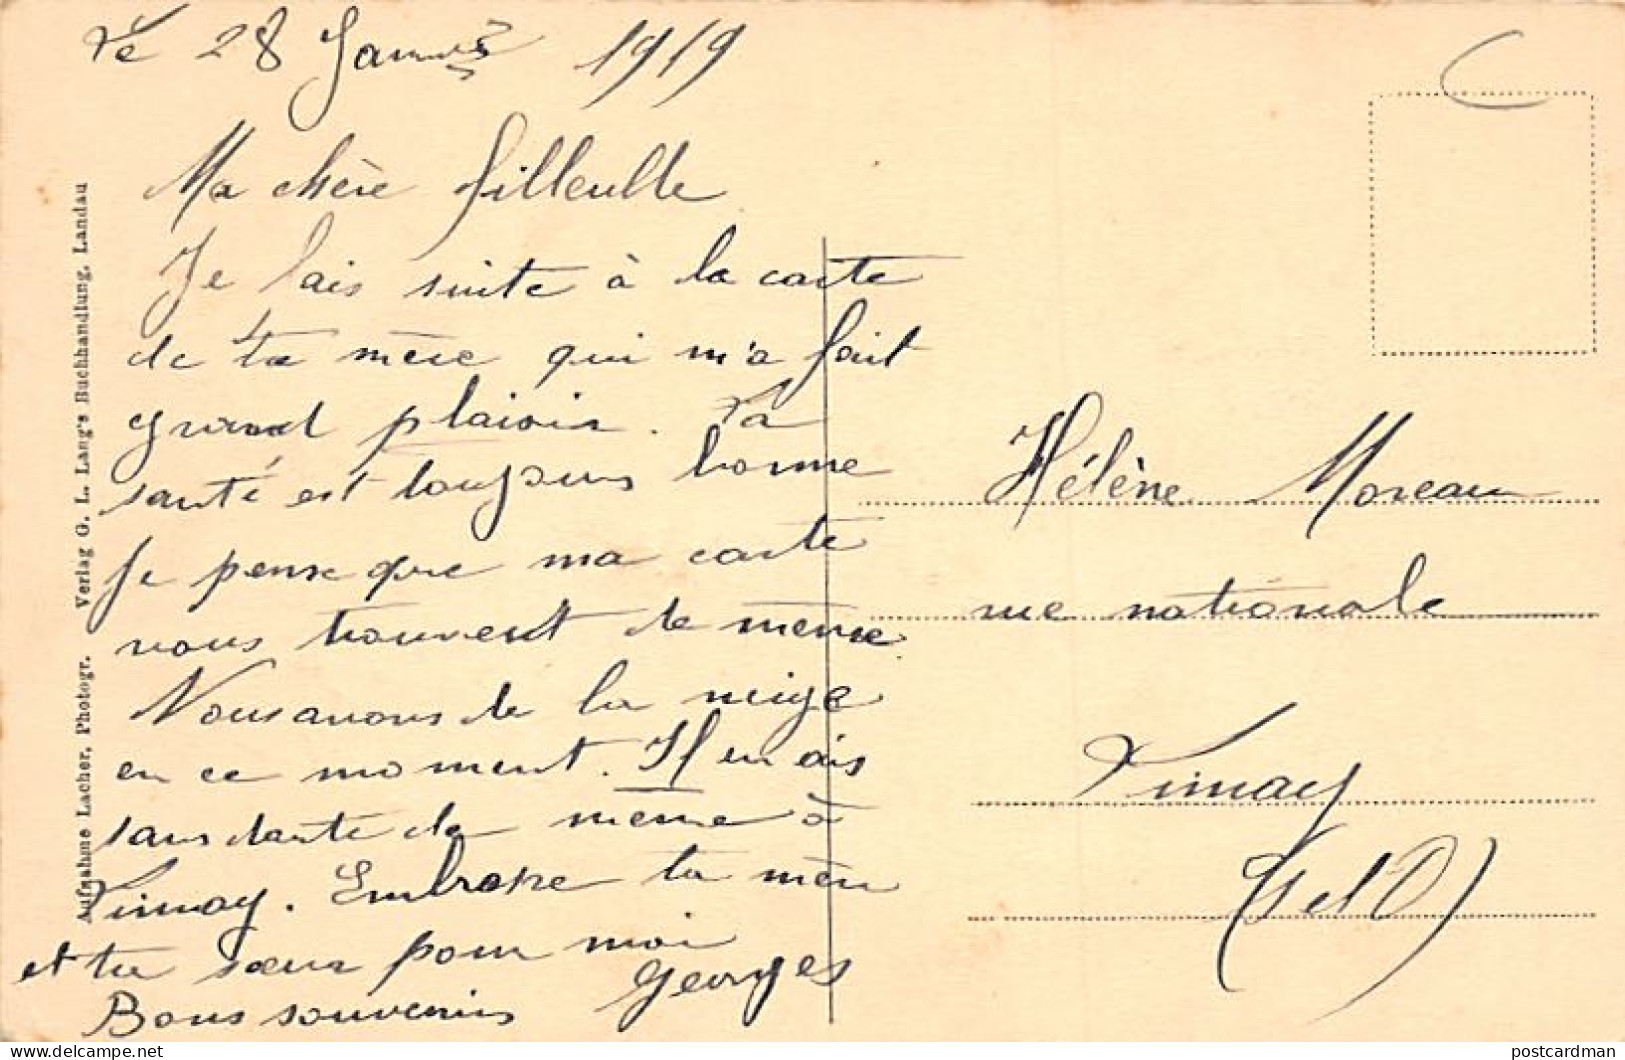 Le 28 Janvier 1919
Ma chère filleulle
Je fais suite à la carte
de ta mère qui m'a fait
grand plaisir. La
santé est toujours bonne
Je pense que ma carte
vous trouvent de même
Nous avons de la neige
en ce moment. Il en ais
sans doute de même à
Limay. Embrasse ta mère
et ta sœur pour moi
Georges
Bons souvenirs
Hélène Moreau
rue nationale
Limay
(S et O)
Aufnahme Lacher, Photogr. Verlag G. L. Lang's Buchhandlung, Landau
postcardman